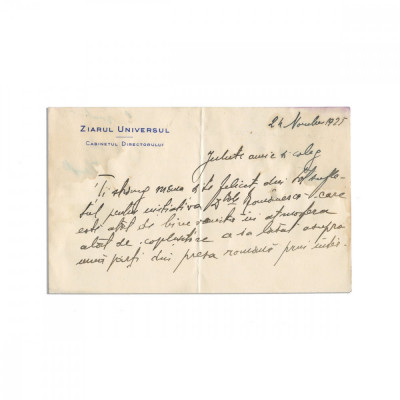 ZIARUL UNIVERSUL
CABINETUL DIRECTORULUI
24 Noembrie 1935
Iubite amic și coleg
Ți strâng mana și te felicit din
pentru inițiativa Românească care
este atât de bine venită in atmosfera
atât de copleșitoare ce s'a lăsat asupra
unei părți din presa română prin